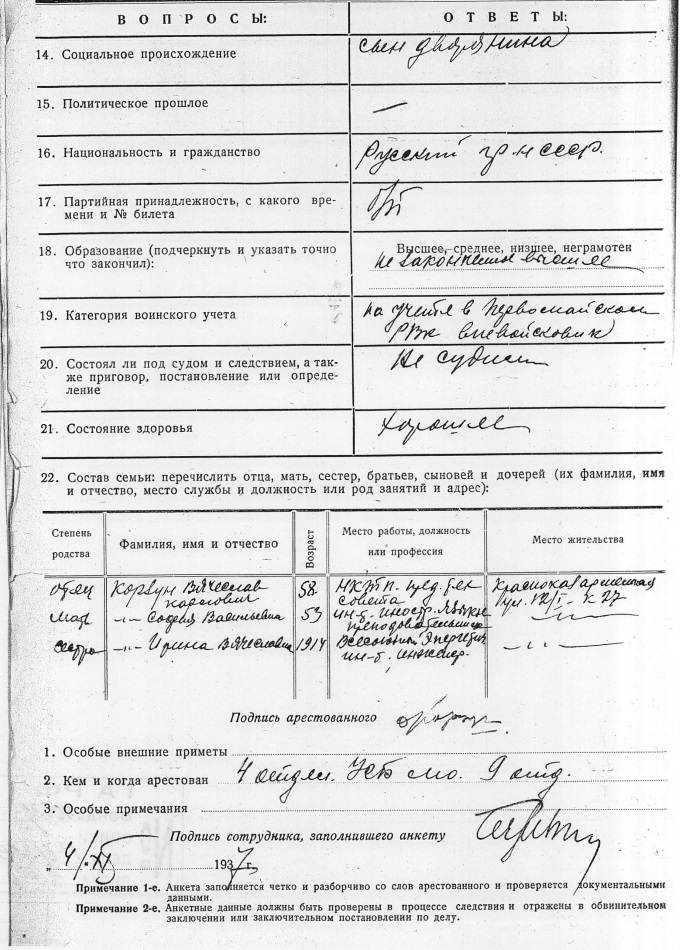 ВОПРОСЫ: ОТВЕТЫ:
14. Социальное происхождение сын дворянина
15. Политическое прошлое —
16. Национальность и гражданство Русский гр-н СССР.
17. Партийная принадлежность, с какого вре-
мени и № билета б/п
18. Образование (подчеркнуть и указать точно Высшее, среднее, низшее, неграмотен
что закончил): не законченное высшее
19. Категория воинского учета на учете в Первомайском
РВК вневойсковик
20. Состоял ли под судом и следствием, а так-
же приговор, постановление или опреде-
ление Не судим
21. Состояние здоровья хорошее
22. Состав семьи: перечислить отца, мать, сестер, братьев, сыновей и дочерей (их фамилия, имя
и отчество, место службы и должность или род занятий и адрес):
Степень родства Фамилия, имя и отчество Возраст Место работы, должность или профессия Место жительства
отец Корвун Вячеслав 58 НКТП. Красноказарменная
совета ул. 12/I- к 27
мать -"- София Васильевна 53 ин-т. иностр. языков -"-
преподавательница
сестра -"- Ирина Вячеславовна 1914 Всесоюзный
ин-т. инженер. -"-
Подпись арестованного
1. Особые внешние приметы
2. Кем и когда арестован 4 отдел. УГБ МО. 9 отд.
3. Особые примечания
Подпись сотрудника, заполнившего анкету
"4/XI 1937 г.
Примечание 1-е. Анкета заполняется четко и разборчиво со слов арестованного и проверяется документальными
данными.
Примечание 2-е. Анкетные данные должны быть проверены в процессе следствия и отражены в обвинительном
заключении или заключительном постановлении по делу.